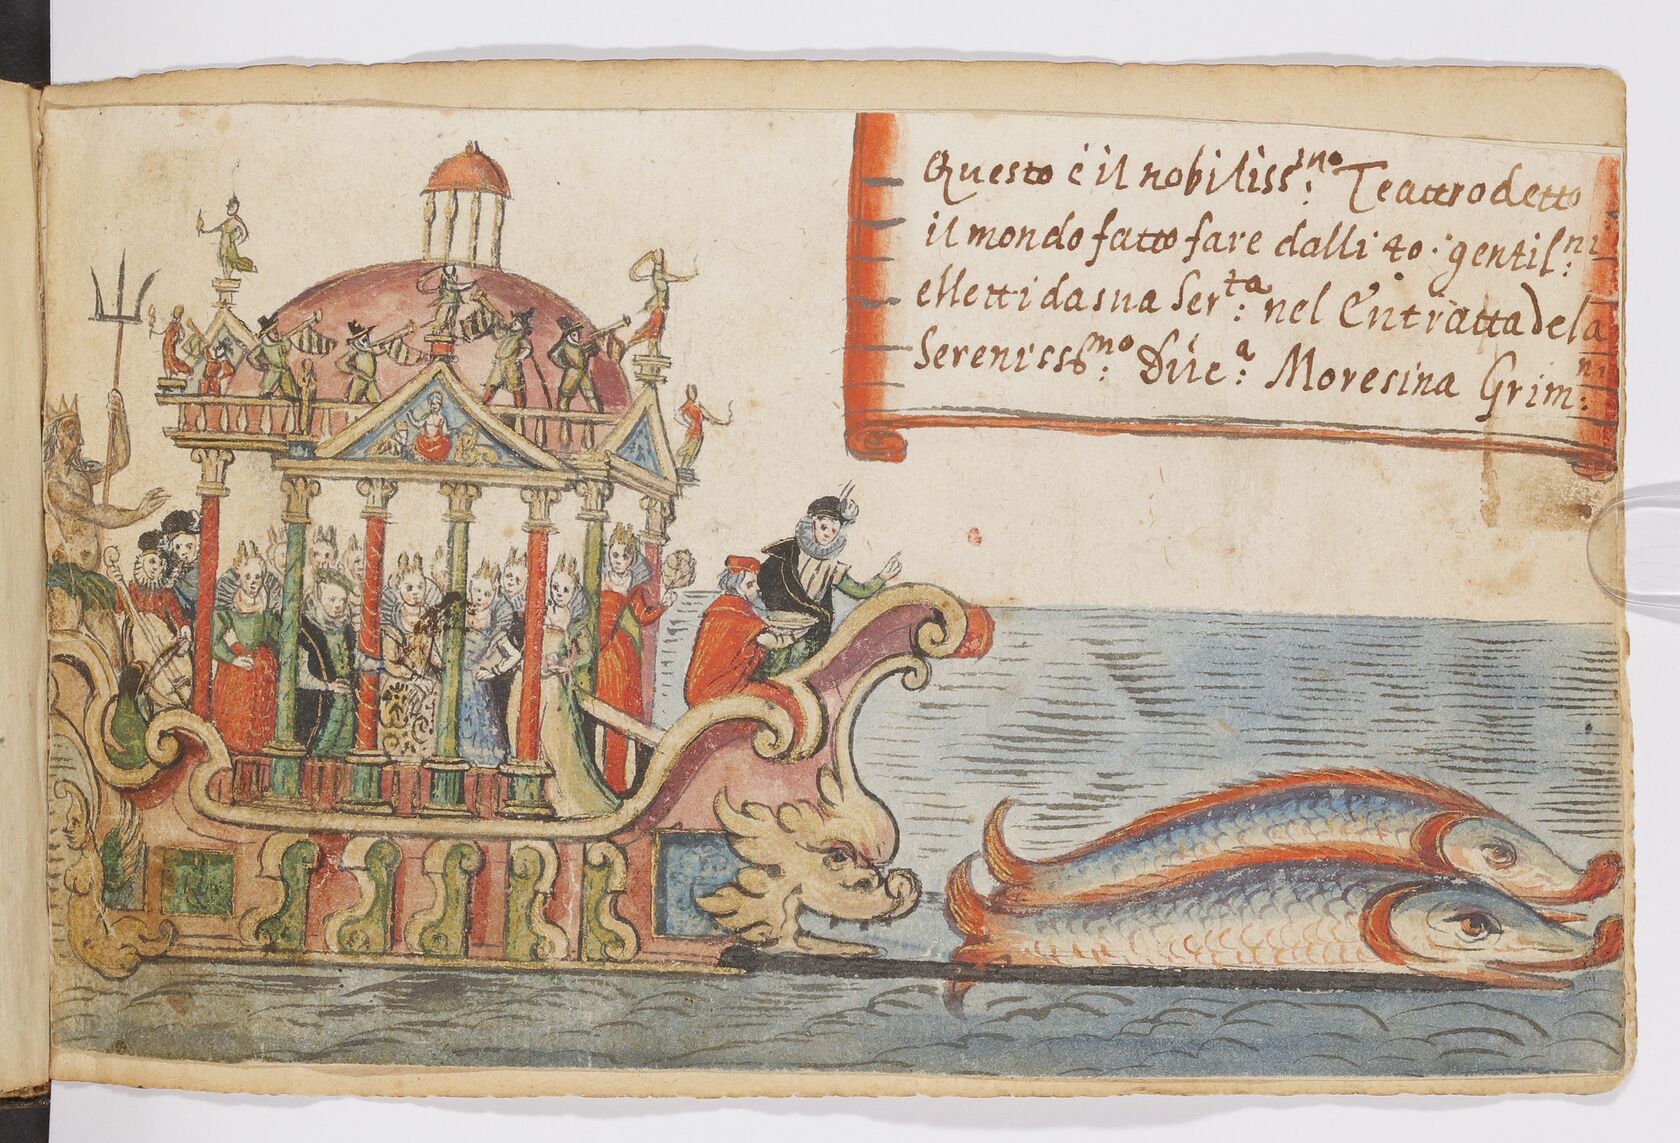 Questo é il nobiliss:mo Teattro detto
il mondo fatto fare dalli 40. gentil:ni
elletti da sua Ser:ta nel Entratta dela
Sereniss:mo Duc:a Moresina Grim:ni